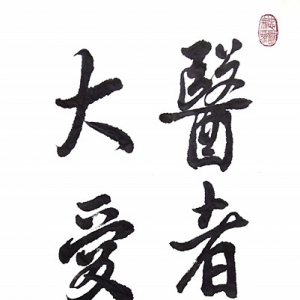 醫者
大愛